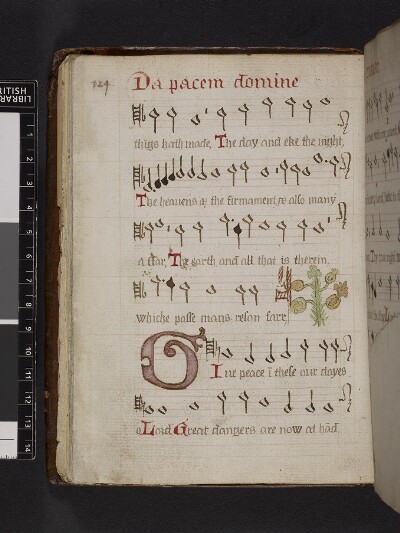 124 Da pacem domine
thīgs hath made, The day and eke the night,
The heavens & the firmament, re also many
a star, The earth and all that is therein,
Whiche passe mans reson farre,
Give peace ī these our dayes
o Lord Great dangers are now at hād